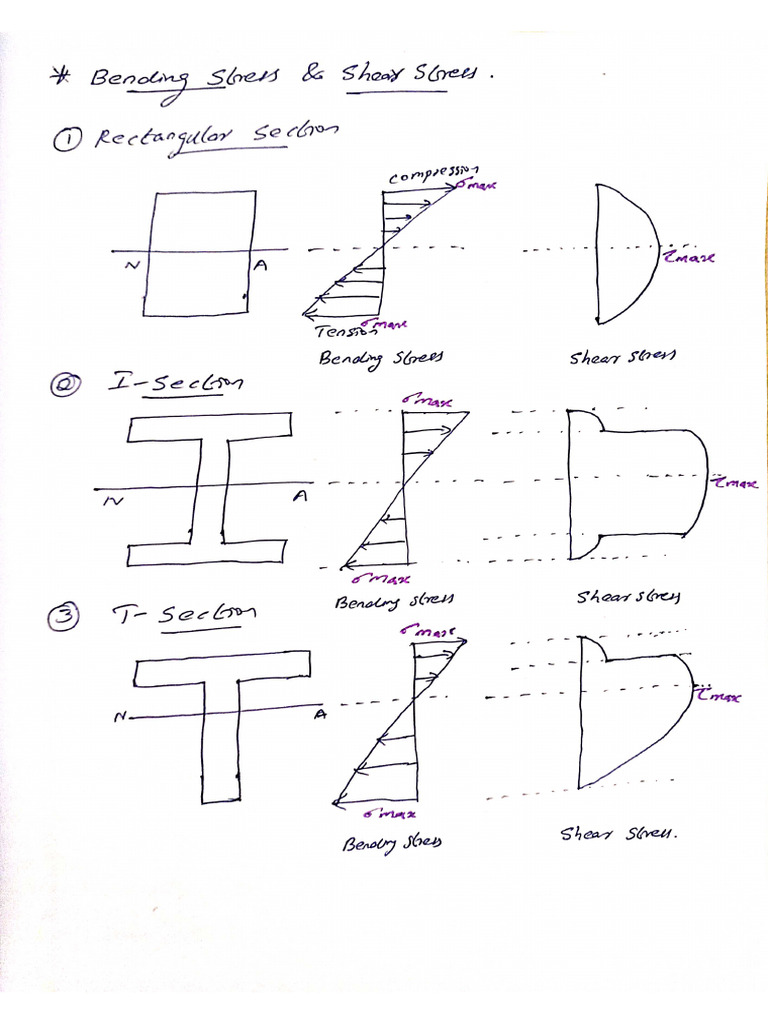 * Bending Stress & Shear Stress.
① Rectangular Section
compression
σmax
N A
τmax
σmax
Tension
Bending Stress Shear stress
② I-Section
σmax
N A
τmax
σmax
Bending stress Shear stress
③ T-Section
σmax
N A
τmax
σmax
Bending stress Shear stress.